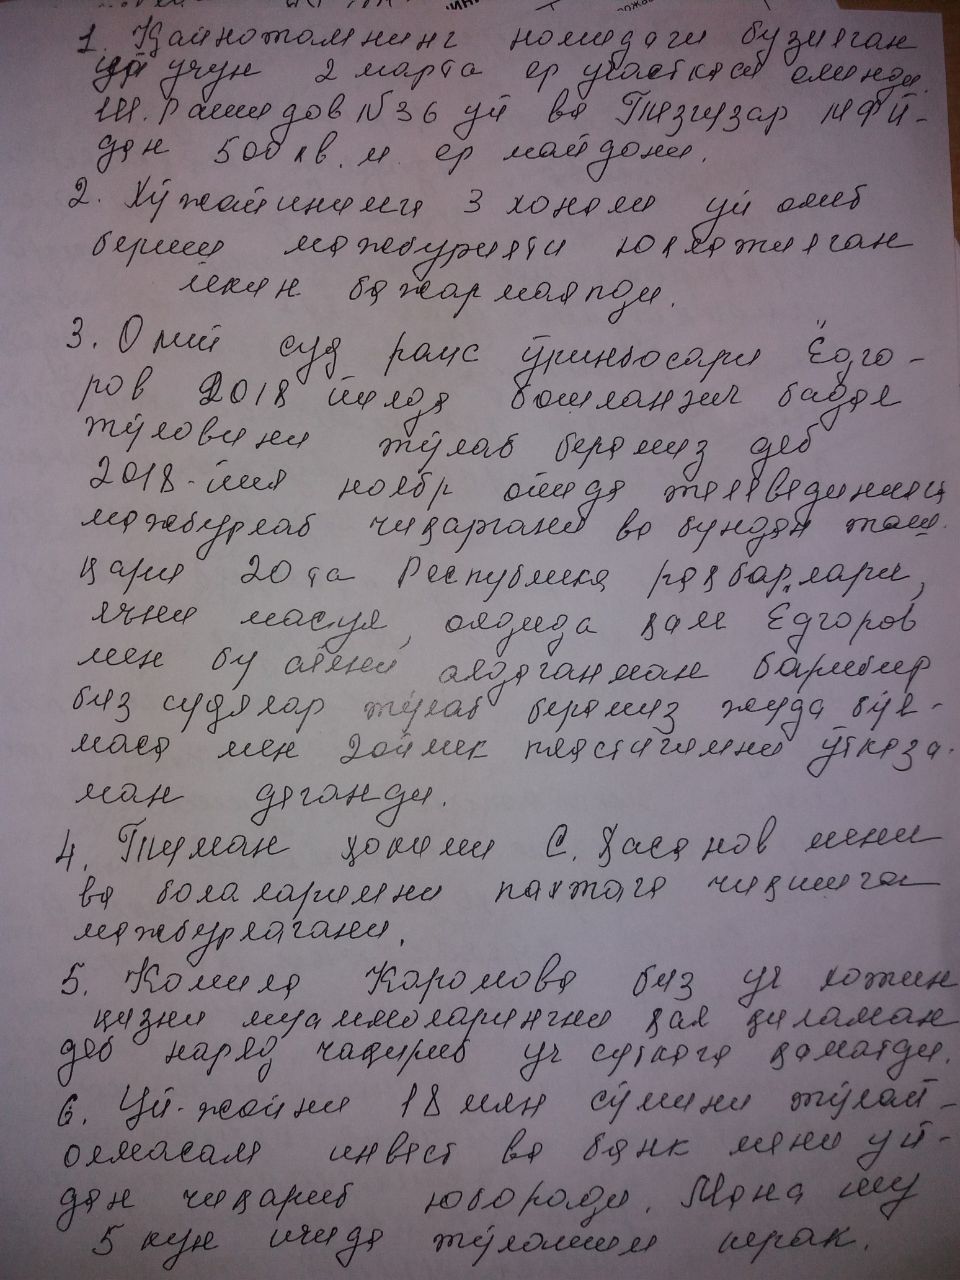 1. Қайнотамнинг номидаги бузилган
уй учун 2 марта ер участкаси олинди.
Ш. Рашидов №36 уй ва Тизгизар МФЙ-
дан 500 кв. м. ер майдони.
2. Хўжайинимга 3 хонали уй олиб
бериш мажбурияти юклатилган
лекин бажармаяпди.
3. Олий суд раис ўринбосари Ёдго-
ров 2018 йилда бошланғич бадал
тўловини тўлаб берамиз деб
2018-йил ноябр ойида телевединияга
мажбурлаб чиқаргани ва бундан таш
қари 20 та Республика раҳбарлари,
яъни масул, олдида ҳам Ёдгоров
мен бу аёлни алдаганман барибир
биз судялар тўлаб берамиз жуда бўл-
маса мен 2 ойлик пластигимни ўтказа-
ман деганди.
4. Туман ҳокими С. Ҳасанов мени
ва болаларимни пахтага чиқишга
мажбурлагани.
5. Комила Каромова биз уч хотин
қизни муаммоларингни ҳал қиламан
деб наряд чақириб уч суткага қаматди.
6. Уй-жойни 18 млн сўмини тўлай
олмасам инвест ва банк мени уй-
дан чиқариб юборади. Мана шу
5 кун ичида тўлашим керак.